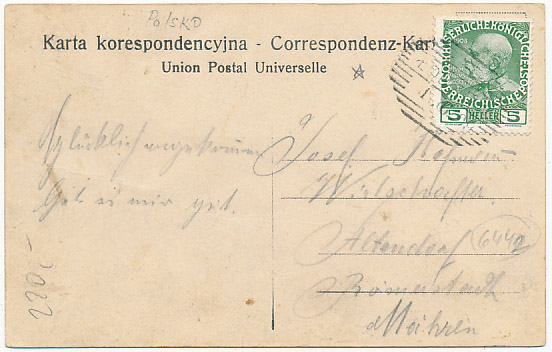 Polsko
Karta korespondencyjna - Correspondenz-Kar
Union Postal Universelle
KAIS. KÖNIGL. ÖSTERREICHISCHE
5 HELLER 5
Glücklich angekommen
Geht es mir gut.
Josef
Wirtschafter
Altendorf
Römerstadt
Mähren
6442
220,-